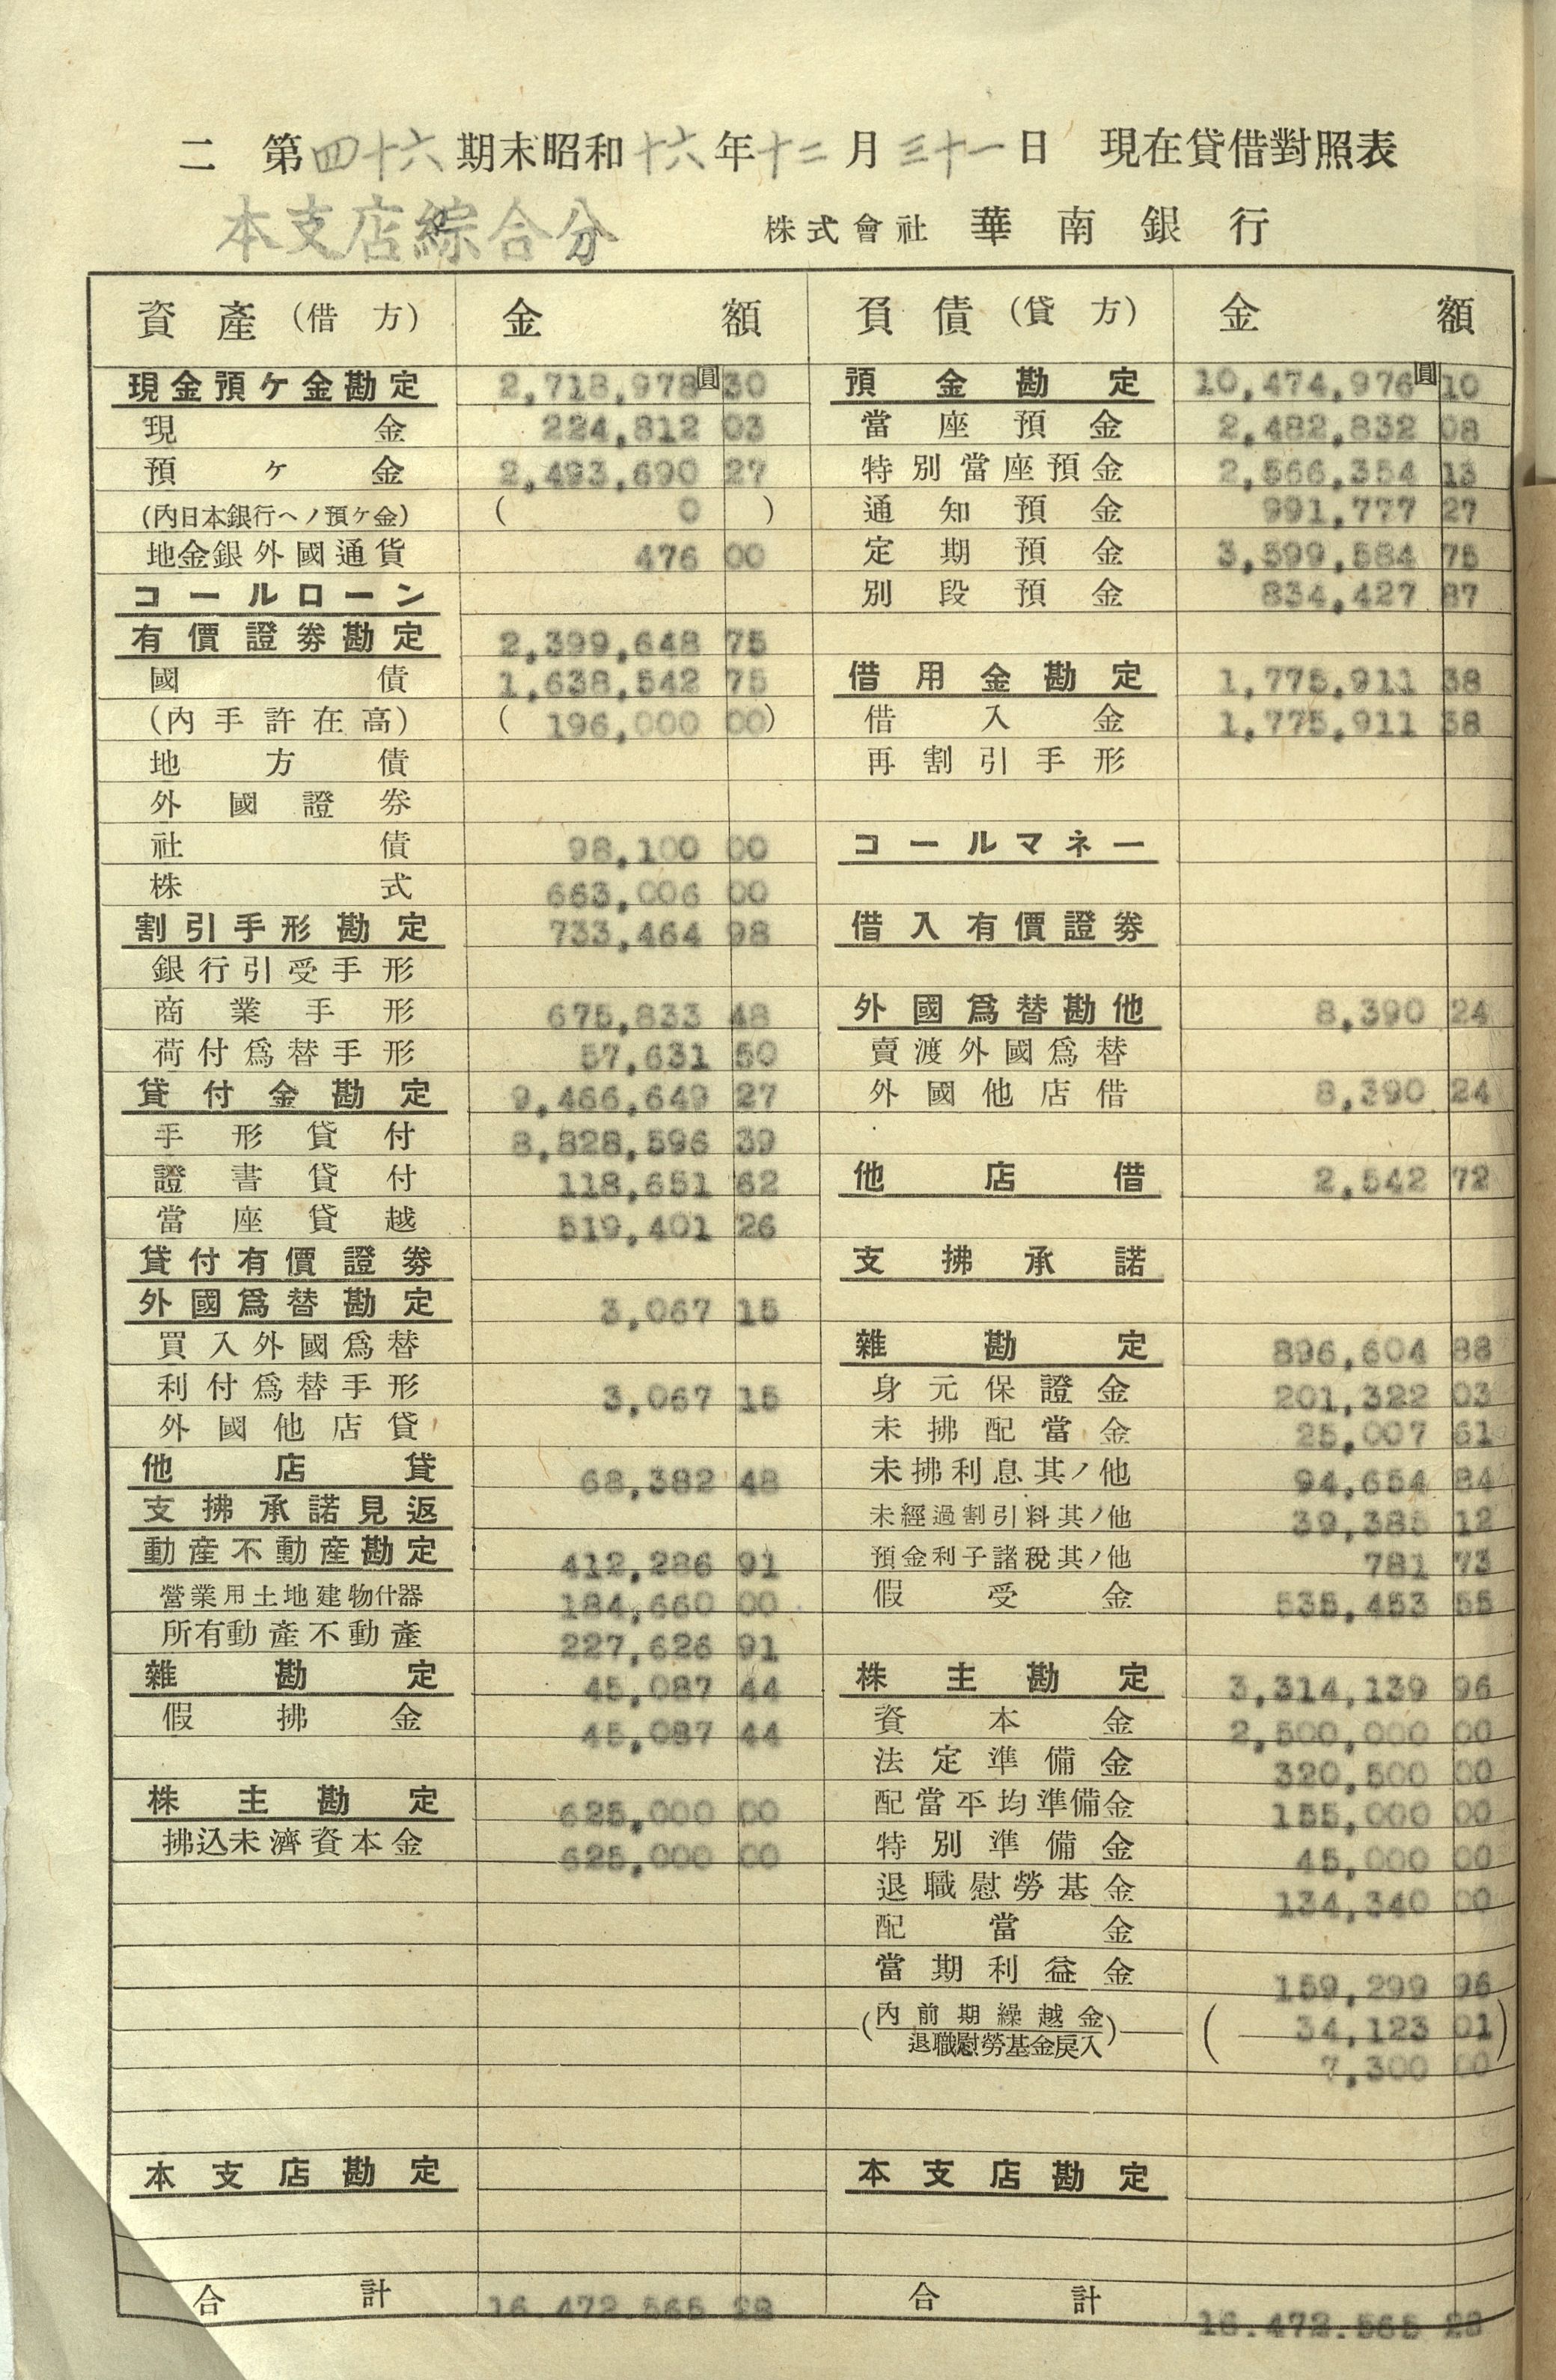 二 第四十六期末昭和十六年十二月三十一日 現在貸借對照表
本支店綜合分 株式會社 華南銀行
資產(借方) 金額
現金預ケ金勘定 2,718,978圓30
現金 224,812 03
預ケ金 2,493,690 27
(內日本銀行ヘノ預ケ金) ( 0 )
地金銀外國通貨 476 00
コールローン
有價證券勘定 2,399,648 75
國債 1,638,542 75
(內手許在高) ( 196,000 00)
地方債
外國證券
社債 98,100 00
株式 663,006 00
割引手形勘定 733,464 98
銀行引受手形
商業手形 675,833 48
荷付爲替手形 57,631 50
貸付金勘定 9,466,649 27
手形貸付 8,828,596 39
證書貸付 118,651 62
當座貸越 519,401 26
貸付有價證券
外國爲替勘定 3,067 15
買入外國爲替
利付爲替手形 3,067 15
外國他店貸
他店貸 68,382 48
支拂承諾見返
動產不動產勘定 412,286 91
營業用土地建物什器 184,660 00
所有動產不動產 227,626 91
雜勘定 45,087 44
假拂金 45,087 44
株主勘定 625,000 00
拂込未濟資本金 625,000 00
本支店勘定
合計 16,472,565 28
負債(貸方) 金額
預金勘定 10,474,976圓10
當座預金 2,482,832 08
特別當座預金 2,566,354 13
通知預金 991,777 27
定期預金 3,599,584 75
別段預金 834,427 87
借用金勘定 1,775,911 38
借入金 1,775,911 38
再割引手形
コールマネー
借入有價證券
外國爲替勘他 8,390 24
賣渡外國爲替
外國他店借 8,390 24
他店借 2,542 72
支拂承諾
雜勘定 896,604 88
身元保證金 201,322 03
未拂配當金 25,007 61
未拂利息其ノ他 94,654 84
未經過割引料其ノ他 39,385 12
預金利子諸稅其ノ他 781 73
假受金 535,453 55
株主勘定 3,314,139 96
資本金 2,500,000 00
法定準備金 320,500 00
配當平均準備金 155,000 00
特別準備金 45,000 00
退職慰勞基金 134,340 00
配當金
當期利益金 159,299 96
(內前期繰越金 ( 34,123 01)
退職慰勞基金戾入) 7,300 00
本支店勘定
合計 16,472,565 28